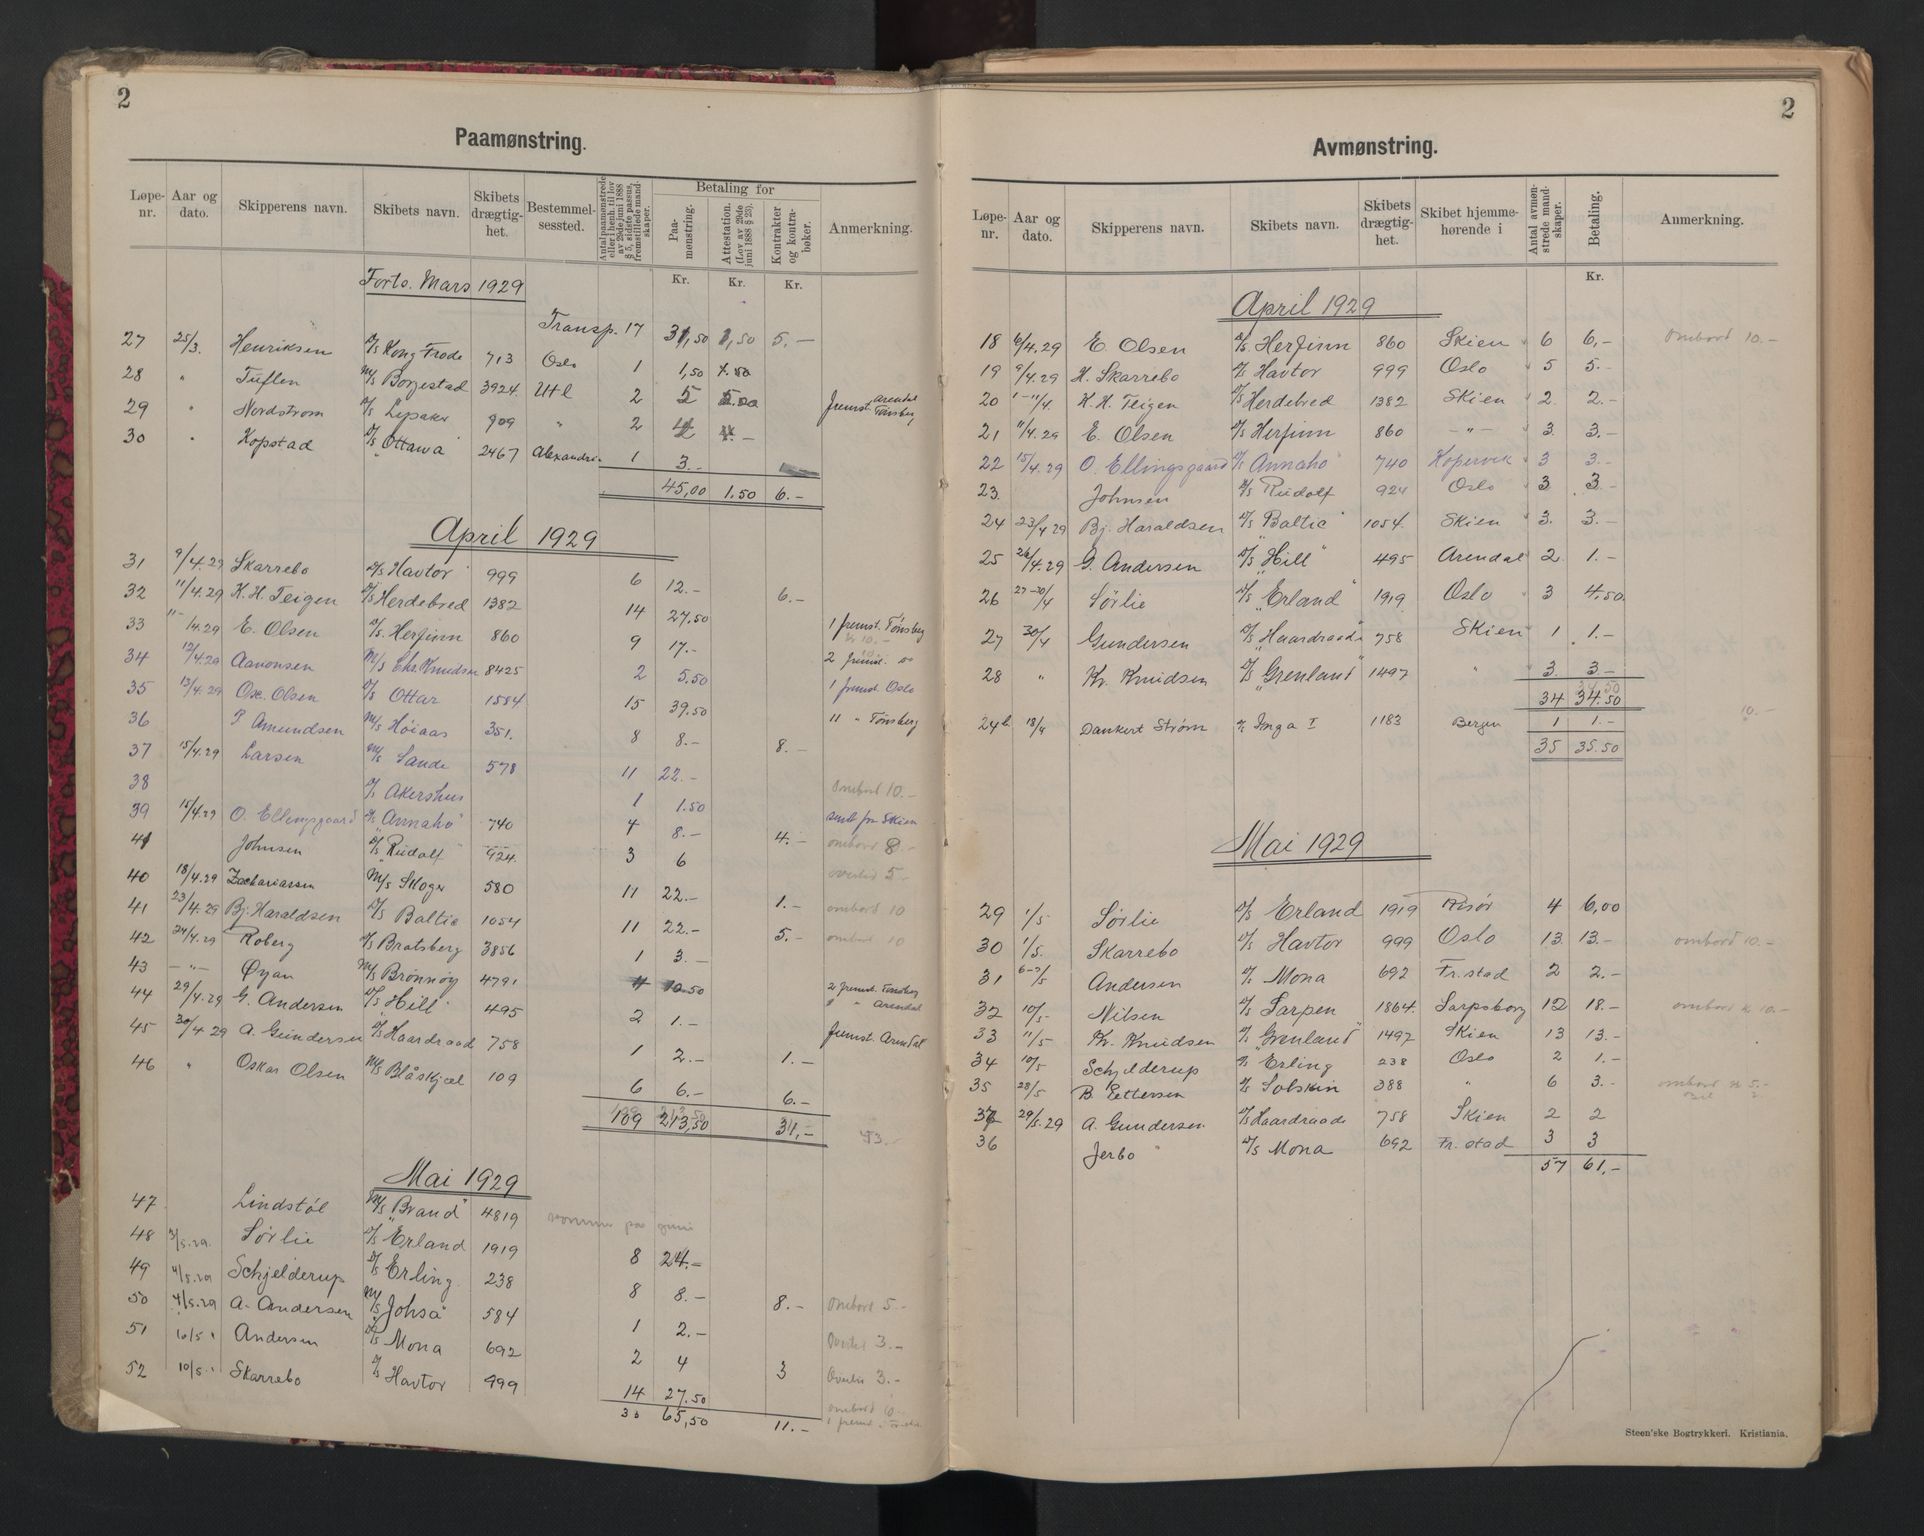 2
Paamønstring.
Løpe-nr. Aar og dato. Skipperens navn. Skibets navn. Skibets drægtig-het. Bestemmel-sessted. Antal paamønstrede eller i henh. til lov av 29de juni 1888 § 5, sidste passus, fremstillede mand-skaper. Betaling for Paa-mønstring. Attestation. (Lov av 29de juni 1888 § 25). Kontrakter og kontra-bøker. Anmerkning.
Kr. Kr. Kr.
Forts. Mars 1929
Transp. 17 31,50 1,50 5.-
27 25/3. Henriksen D/s Kong Frode 713 Oslo 1 1,50
28 " Tuflen M/s Borgestad 3924 Utl 2 5 5.00
29 Nordstrøm D/s Lysaker 909 " 2 4 4.- fremst. Arendal Tønsberg
30 " Kopstad D/s "Ottawa" 2467 1 3.-
45,00 1.50 6.-
April 1929
31 9/4.29 Skarrebo D/s Havtor 999 6 12.- 6.-
32 11/4.29 H. H. Teigen D/s Herdebred 1382 14 27,50
33 "-/4.29 E. Olsen D/s Herfinn 860 9 17.- 1 fremst. Tønsberg
34 12/4.29 Aanonsen M/s Chr. Knudsen 8425 2 5.50 2 fremst.
35 13/4.29 Osc. Olsen D/s Ottar 1584 15 39.50 1 fremst. Oslo
36 P Amundsen M/s Høiaas 351. 8 8.- 8.- 11 " Tønsberg
37 15/4.29 Larsen M/s Sande 578 11 22.-
38 D/s Akershus 1 1.50 ombord 10.-
39 15/4.29 O. Ellingsgaard D/s "Annaho" 740 4 8.- 4.- sendt fra Skien
41 Johnsen D/s "Rudolf" 924. 3 6 ombord 8.-
40 18/4.29 Zachariassen M/s Skoger 580 11 22.- 1.- overtid 5.-
41 23/4.29 Bj. Haraldsen D/s Baltic 1054 11 22.- 5.- ombord 10
42 24/4.29 Roberg D/s Bratsberg 3856 1 3.- ombord 10
43 -"- Øyan M/s Brønnøy 4791 4 10.50
44 29/4.29 G. Andersen D/s "Hill" 495 2 1.- 2 fremst. Tønsberg " Arendal
45 30/4.29 A. Gundersen D/s Haardraade 758 1 2.- 1.- fremst. Arendal
46 " Oskar Olsen M/s Blåskjæl 109 6 6.- 6.-
109 213,50 31,-
Mai 1929
47 Lindstøl M/s "Brand" 4819 kommer paa juni
48 3/5.29. Sørlie D/s Erland 1919 8 24.-
49 4/5.29 Schjelderup D/s Erling. 238 8 8.- 8.-
50 4/5.29 A. Andersen M/s "Johså" 584 1 2.- ombord 5.-
51 10/5 Andersen D/s Mona 692 2 4 3 Overtid 3.-
52 10/5 Skarrebo D/s Havtor 999 14 27.50 Overtid 3.-
65,50 11.- ombord 10.-
2
Avmønstring.
Løpe-nr. Aar og dato. Skipperens navn. Skibets navn. Skibets drægtig-het. Skibet hjemme-hørende i Antal avmøn-strede mand-skaper. Betaling. Anmerkning.
Kr.
April 1929
18 6/4.29 E. Olsen D/s. Herfinn 860 Skien 6 6,- ombord 10.-
19 9/4.29 H. Skarrebo D/s Havtor 999 Oslo 5 5.-
20 1-11/4. H. H. Teigen D/s Herdebred 1382 Skien 2 2.-
21 11/4.29 E. Olsen D/s Herfinn 860 -"- 3 3.-
22 15/4.29 O. Ellingsgaard D/s "Annaho" 740 Kopervik 3 3.-
23 Johnsen D/s Rudolf 924 Oslo 3 3.-
24 23/4 29 Bj. Haraldsen D/s "Baltic" 1054. Skien 3. 3.-
25 26/4.29 G. Andersen D/s "Hill" 495 Arendal 2 1.-
26 27-30/4 Sørlie D/s "Erland" 1919 Oslo 3 4.50
27 30/4 Gundersen D/s "Haardraade" 758 Skien 1 1.-
28 " Kr. Knudsen D/s "Grenland" 1497 " 3 3.-
34 34.50
24b 18/4 Dankert Strøm D/s Inga I 1183 Bergen 1 1.- 10.-
35 35.50
Mai 1929
29 1/5 Sørlie D/s Erland 1919 Risør 4 6,00
30 1/5. Skarrebo D/s Havtor 999 Oslo 13. 13.- ombord 10.-
31 6-7/5 Andersen D/s Mona 692 Fr.stad 2 2.-
32 10/5- Nilsen D/s Sarpen 1864. Sarpsborg 12 18.- ombord kr 10.-
33 11/5 Kr. Knudsen D/s "Grenland" 1497 Skien 13 13.-
34 10/5 Schjelderup D/s "Erling 238 Oslo 2 1.-
35 28/5 B. Pettersen D/s Solskin 388 " 6 3.- ombord kr 5.-
37 29/5.29 A. Gundersen D/s Haardraade 758 Skien 2 2
36 Jerbo D/s Mona 692 Fr. stad 3 3
57 61.-
Steen'ske Bogtrykkeri. Kristiania.